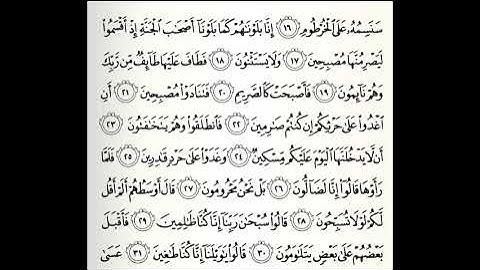 سَنَسِمُهُۥ عَلَى ٱلْخُرْطُومِ ١٦ إِنَّا بَلَوْنَٰهُمْ كَمَا بَلَوْنَآ أَصْحَٰبَ ٱلْجَنَّةِ إِذْ أَقْسَمُوا۟
لَيَصْرِمُنَّهَا مُصْبِحِينَ ١٧ وَلَا يَسْتَثْنُونَ ١٨ فَطَافَ عَلَيْهَا طَآئِفٌ مِّن رَّبِّكَ
وَهُمْ نَآئِمُونَ ١٩ فَأَصْبَحَتْ كَٱلصَّرِيمِ ٢٠ فَتَنَادَوْا۟ مُصْبِحِينَ ٢١ أَنِ
ٱغْدُوا۟ عَلَىٰ حَرْثِكُمْ إِن كُنتُمْ صَٰرِمِينَ ٢٢ فَٱنطَلَقُوا۟ وَهُمْ يَتَخَٰفَتُونَ ٢٣
أَن لَّا يَدْخُلَنَّهَا ٱلْيَوْمَ عَلَيْكُم مِّسْكِينٌ ٢٤ وَغَدَوْا۟ عَلَىٰ حَرْدٍ قَٰدِرِينَ ٢٥ فَلَمَّا
رَأَوْهَا قَالُوٓا۟ إِنَّا لَضَآلُّونَ ٢٦ بَلْ نَحْنُ مَحْرُومُونَ ٢٧ قَالَ أَوْسَطُهُمْ أَلَمْ أَقُل
لَّكُمْ لَوْلَا تُسَبِّحُونَ ٢٨ قَالُوا۟ سُبْحَٰنَ رَبِّنَآ إِنَّا كُنَّا ظَٰلِمِينَ ٢٩ فَأَقْبَلَ
بَعْضُهُمْ عَلَىٰ بَعْضٍ يَتَلَٰوَمُونَ ٣٠ قَالُوا۟ يَٰوَيْلَنَآ إِنَّا كُنَّا طَٰغِينَ ٣١ عَسَىٰ